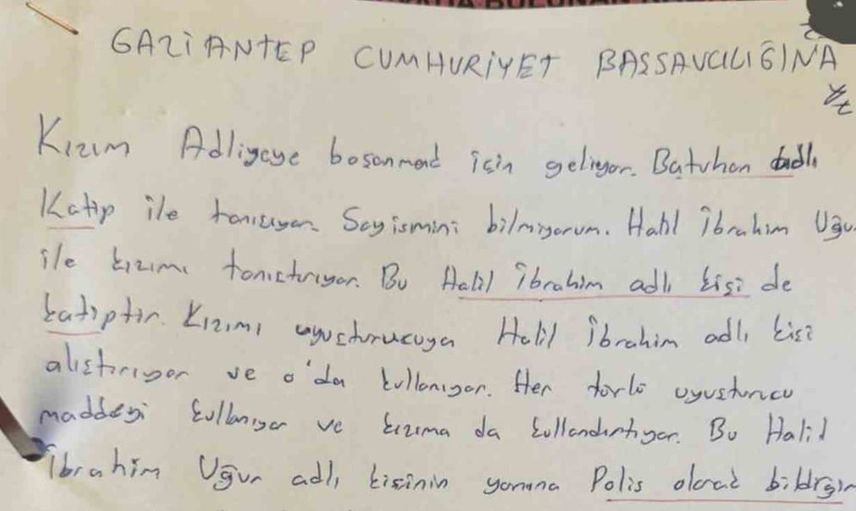 GAZİANTEP CUMHURİYET BAŞSAVCILIĞINA
Kızım Adliyeye boşanmak için geliyor. Batuhan adlı
Katip ile tanışıyor. Soyismini bilmiyorum. Halil İbrahim Uğur
ile kızımı tanıştırıyor. Bu Halil İbrahim adlı kişi de
katiptir. Kızımı uyuşturucuya Halil İbrahim adlı kişi
alıştırıyor ve o'da kullanıyor. Her türlü uyuşturucu
maddeyi kullanıyor ve kızıma da kullandırtıyor. Bu Halil
İbrahim Uğur adlı kişinin yanına Polis olarak